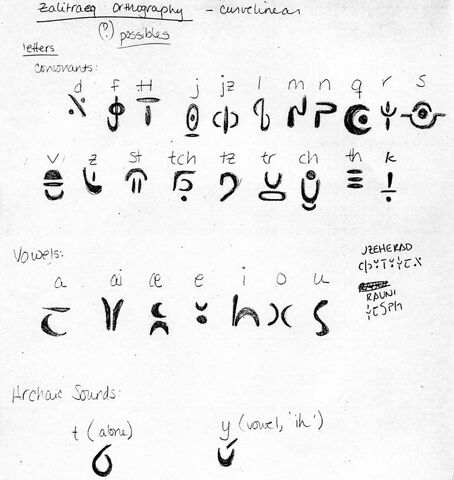 Zalitraeq Orthography - curvelinear
(?) possibles
letters
consonants:
d f H j jz l m n q r s
v z st tch tz tr ch th k
Vowels:
a ai æ e i o u
JZEHERAD
RAUNI
Archaic Sounds:
t (alone) y (vowel, 'ih')